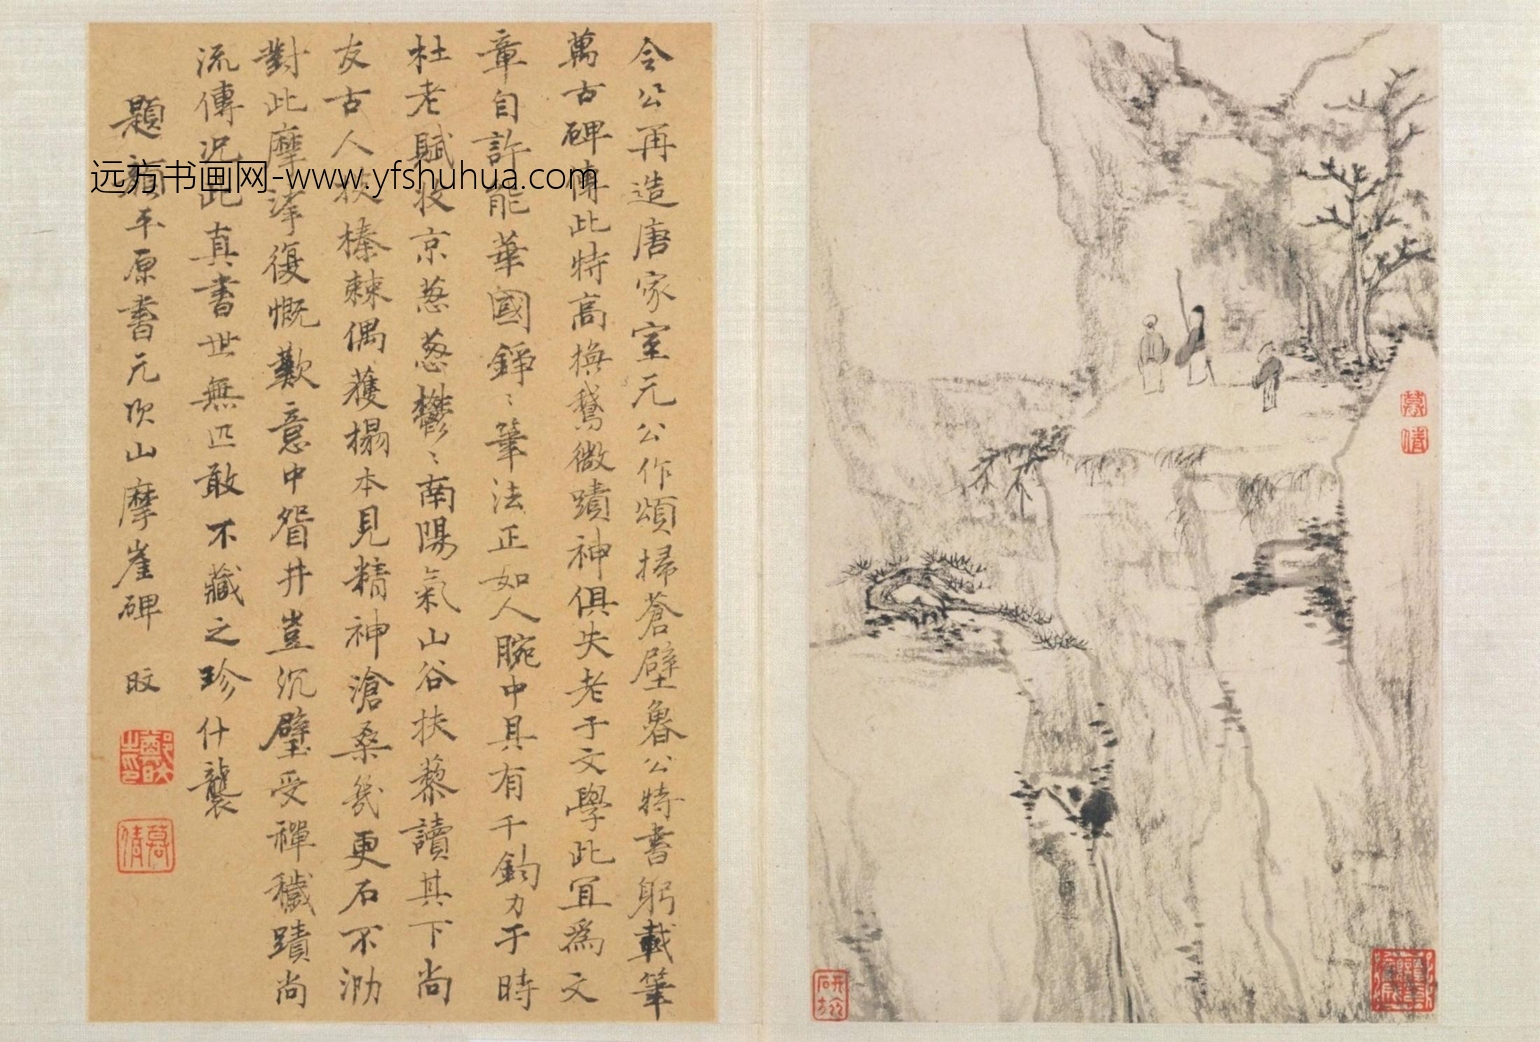 令公再造唐家室元公作頌掃蒼壁魯公特書躬載筆
萬古碑傳此特高換鵝微蹟神俱失老于文學此宜爲文
章自許能華國錚〻筆法正如人腕中具有千鈞力于時
杜老賦收京蔥蔥鬱〻南陽氣山谷扶藜讀其下尚
友古人披榛棘偶獲榻本見精神滄桑幾更石不泐
對此摩挲復慨歎意中眢井豈沉璧受禪穢蹟尚
流傳況此真書世無匹敢不藏之珍什襲
題顏平原書元次山摩崖碑
旼
鄭旼之印
慕倩
慕倩
研旅
远方书画网-www.yfshuhua.com